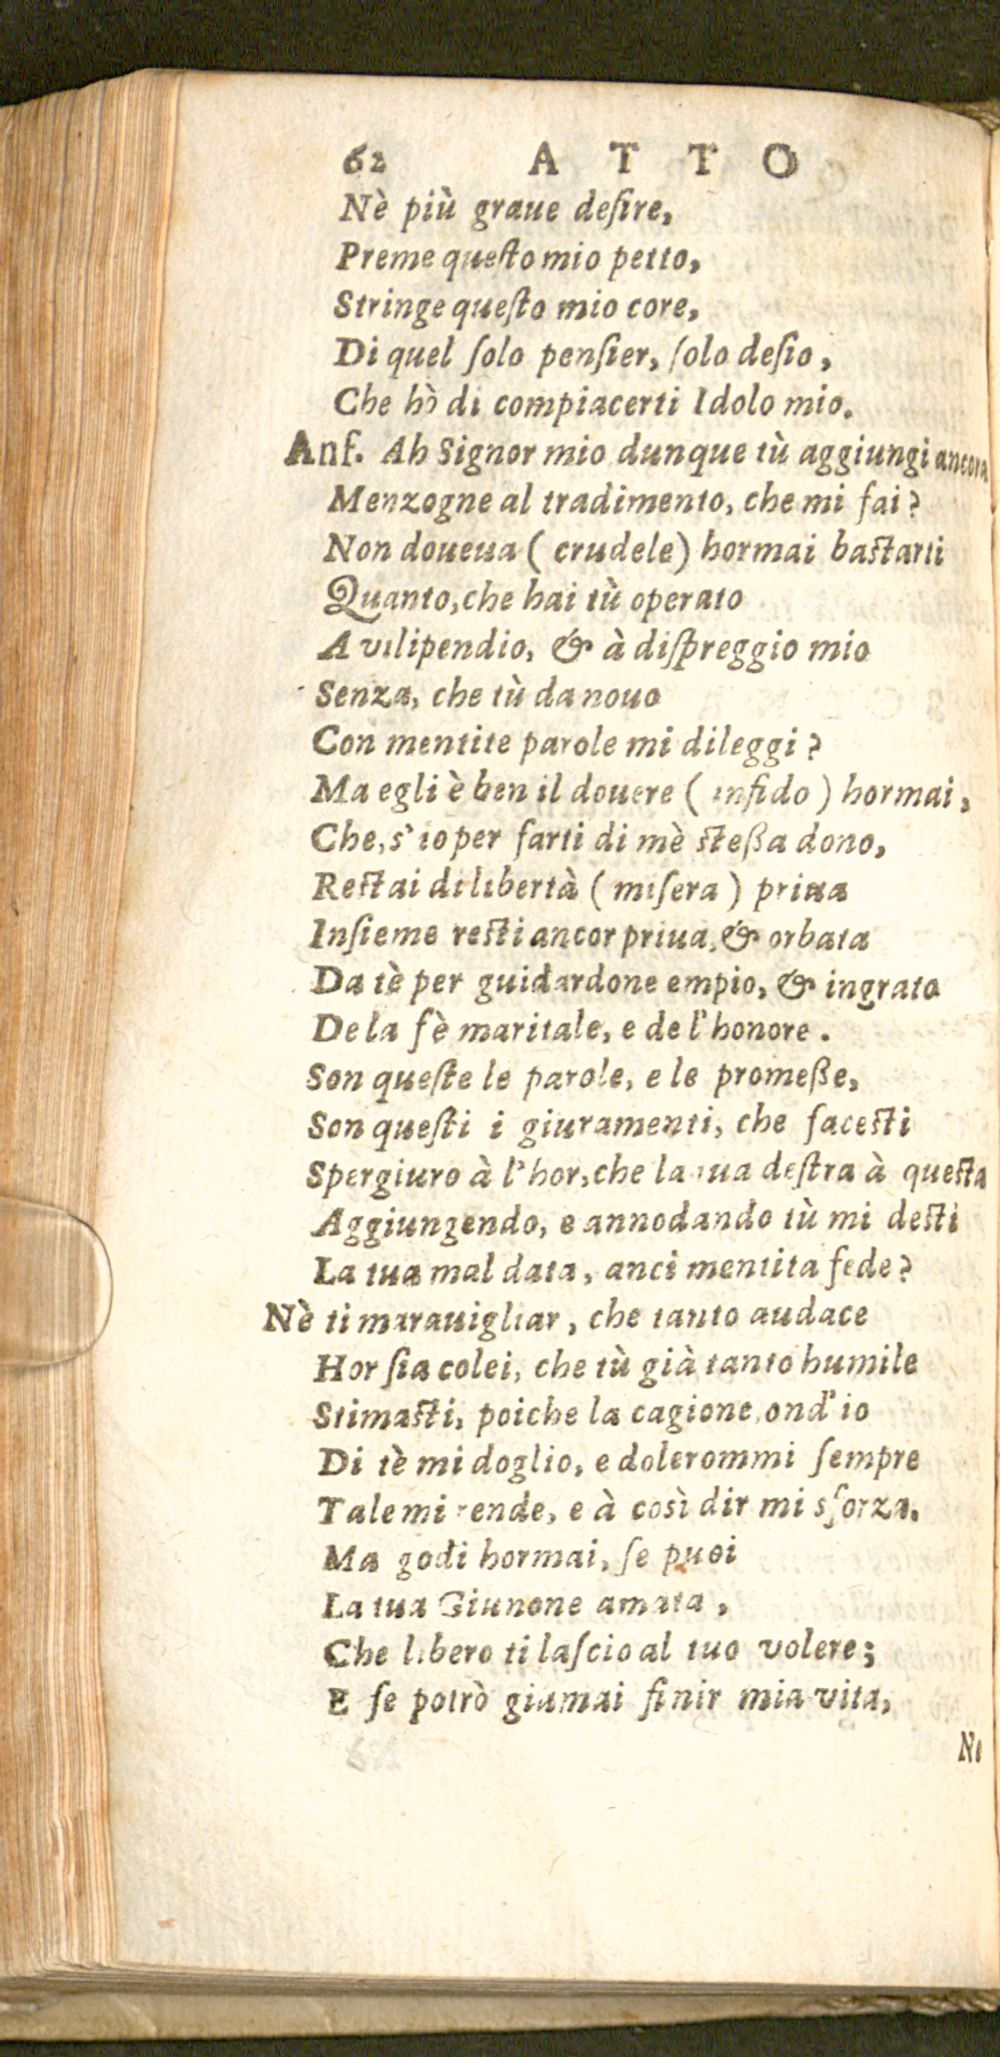 62 A T T O
Nè più graue deſire,
Preme queſto mio petto,
Stringe queſto mio core,
Di quel ſolo penſier, ſolo deſio,
Che hò di compiacerti Idolo mio.
Anf. Ah Signor mio dunque tù aggiungi ancora
Menzogne al tradimento, che mi fai?
Non doueua ( crudele) hormai baſtarti
Quanto, che hai tù operato
A vilipendio, & à diſpreggio mio
Senza, che tù da nouo
Con mentite parole mi dileggi?
Ma egli è ben il douere ( infido ) hormai,
Che, s' io per farti di mè ſteßa dono,
Reſtai di libertà ( miſera ) priua
Inſieme reſti ancor priua, & orbata
Da tè per guidardone empio, & ingrato
De la fè maritale, e de l'honore.
Son queſte le parole, e le promeße,
Son queſti i giuramenti, che faceſti
Spergiuro à l'hor, che la tua deſtra à queſta
Aggiungendo, e annodando tù mi deſti
La tua mal data, anci mentita fede?
Nè ti marauigliar, che tanto audace
Hor ſia colei, che tù già tanto humile
Stimaſti, poiche la cagione, ond'io
Di tè mi doglio, e dolerommi ſempre
Tale mi rende, e à così dir mi sforza.
Ma godi hormai, ſe puoi
La tua Giunone amata,
Che libero ti laſcio al tuo volere;
E ſe potrò giamai finir mia vita,
Ne